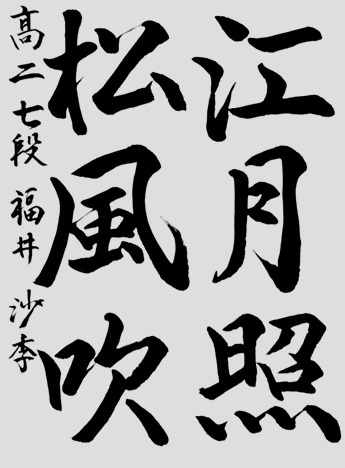 江月照
松風吹
高二七段 福井 沙季